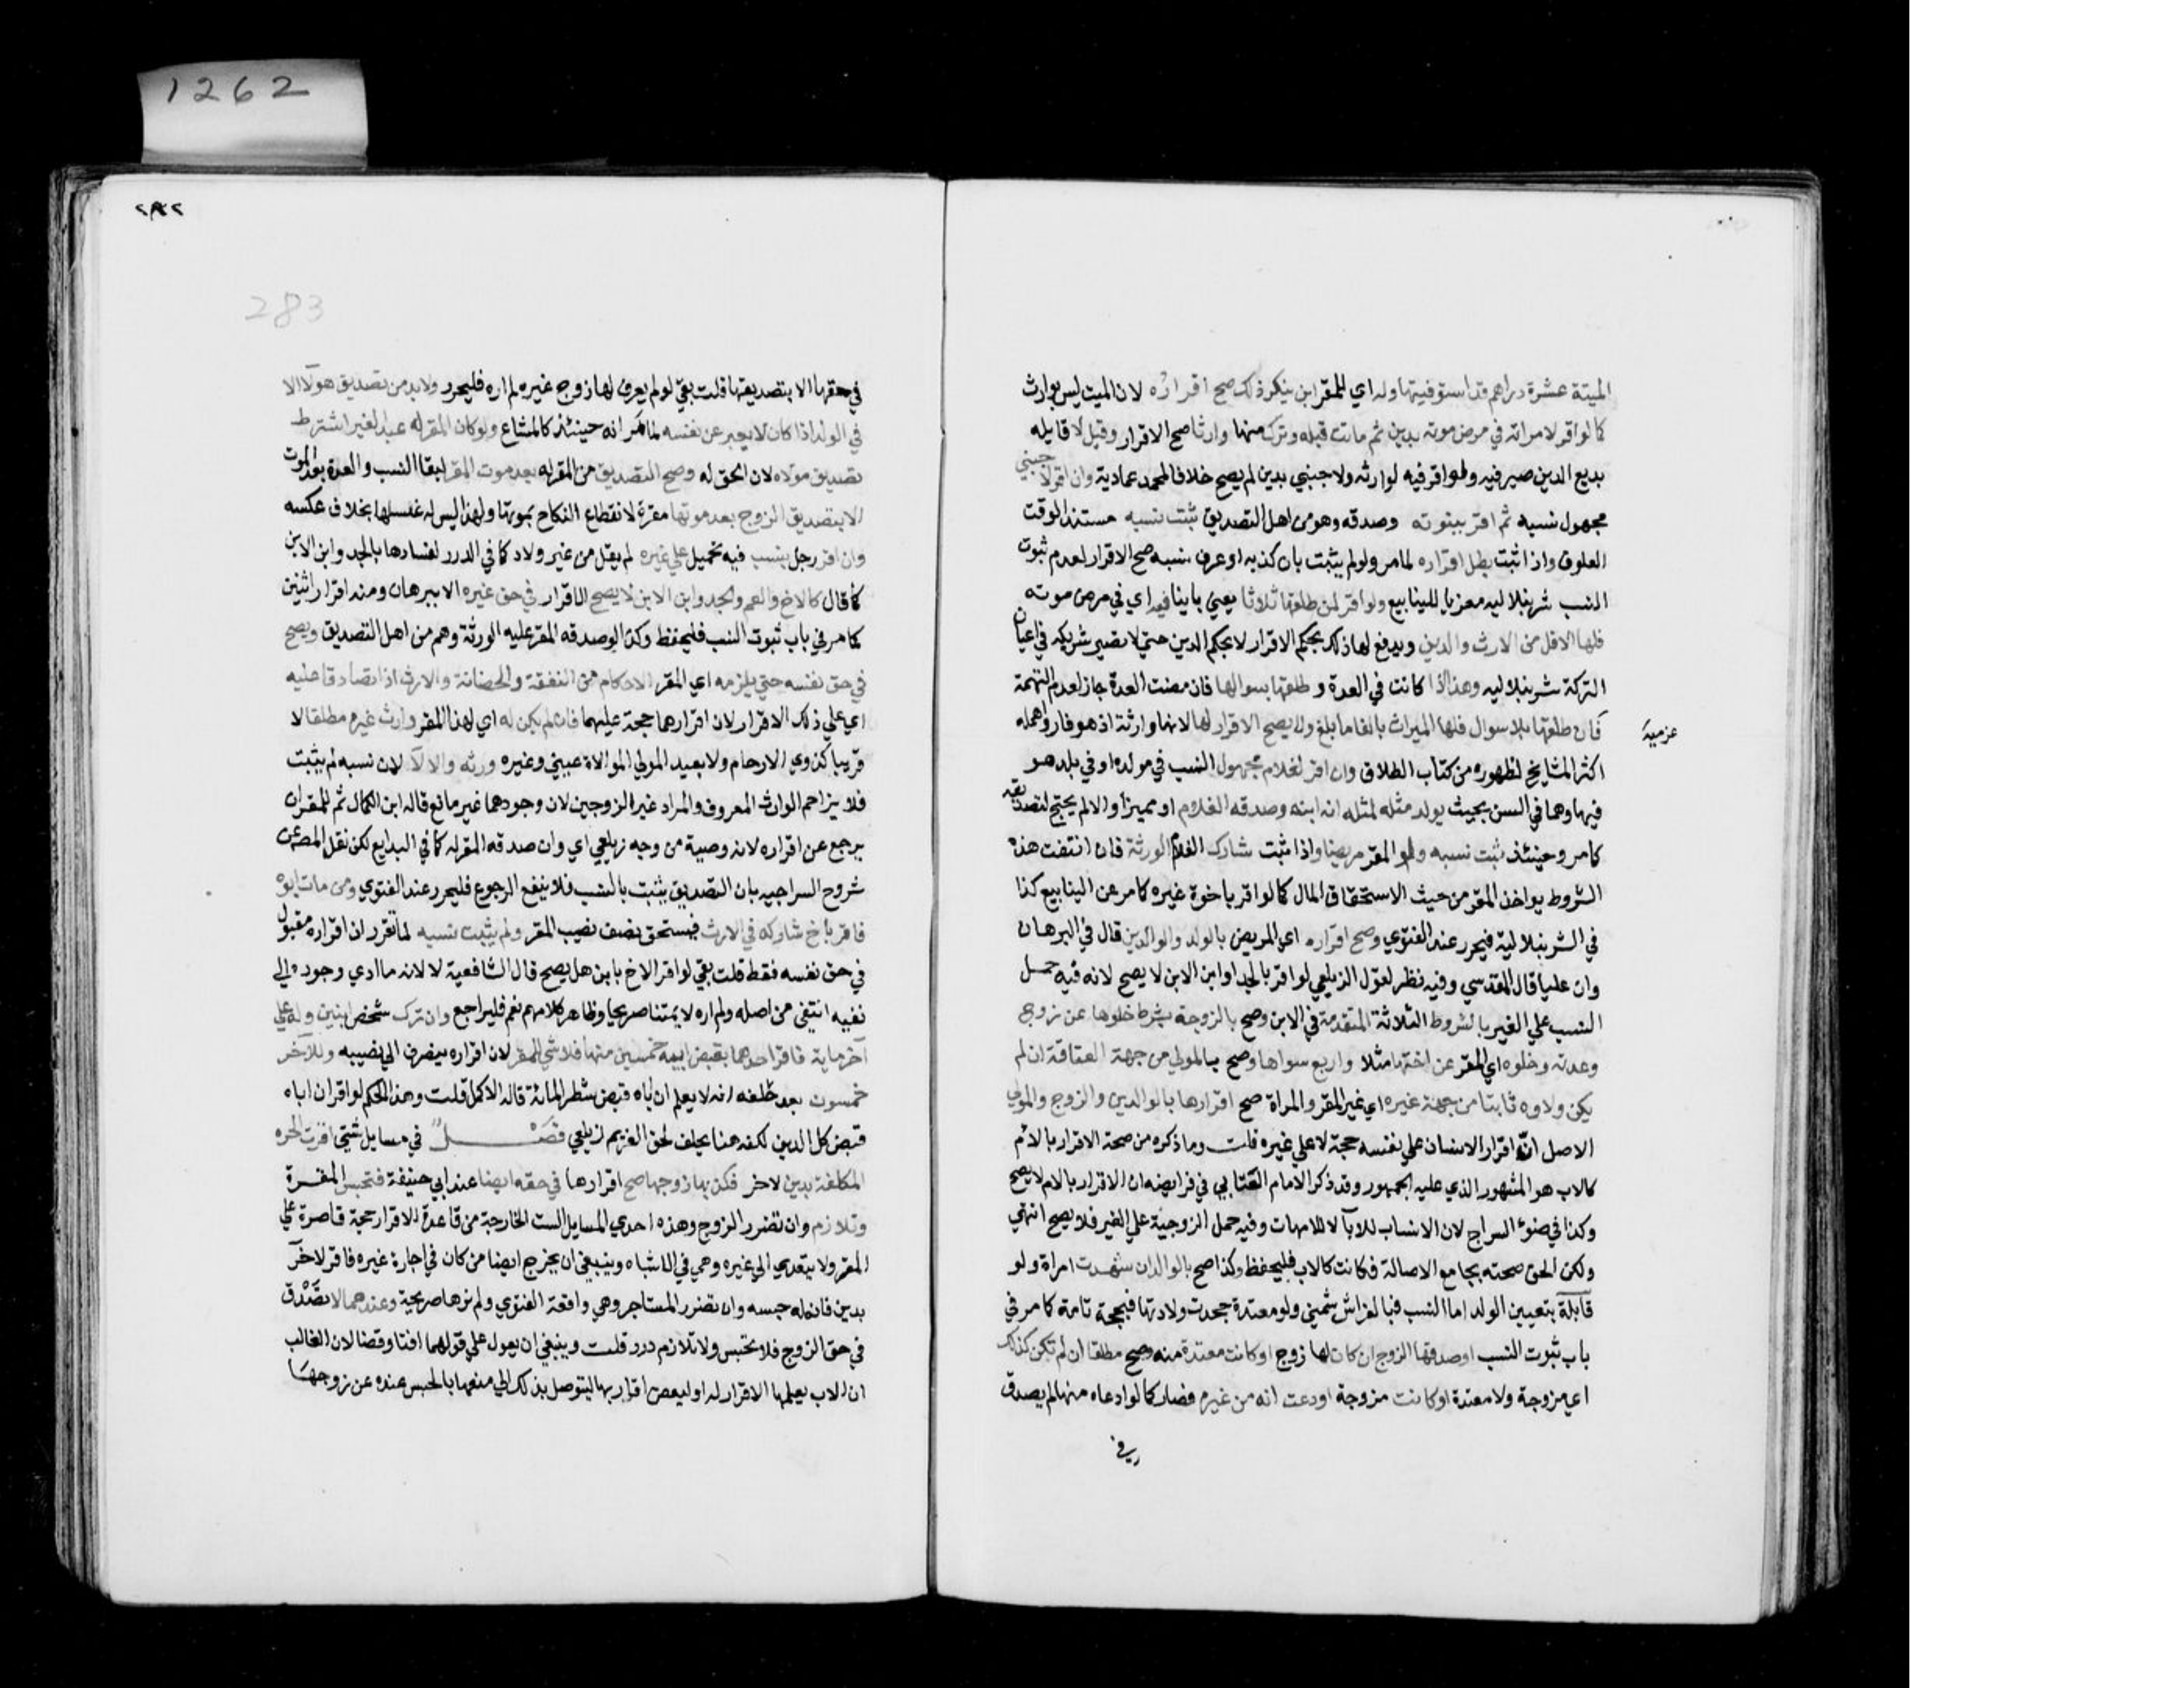 1262
٢٨٢
283
الميتة عشرة دراهم قد استوفيتها وله اي للمقر ابن ينكر ذلك صح اقراره لان الميت ليس بوارث
كما لو اقر لامراته في مرض موته بدين ثم ماتت قبله وترك منها وارثا صح الاقرار وقيل لا قايله
بديع الدين صيرفيه ولو اقر فيه لوارثه ولاجنبي بدين لم يصح خلافا لمحمد عمادية وان اقر لاجنبي
مجهول نسبه ثم اقر ببنوته وصدقه وهو من اهل التصديق ثبت نسبه مستند الوقت
العلوق واذا ثبت بطل اقراره لما مر ولو لم يثبت بان كذبه او عرف نسبه صح الاقرار لعدم ثبوت
النسب شرنبلاليه معزيا للينابيع ولو اقر لمن طلقها ثلاثا يعني باينا فيه اي في مرض موته
فلها الاقل من الارث والدين ويدفع لها ذلك بحكم الاقرار لا بحكم الدين حتي لا تصير شريكه في اعيان
التركة شرنبلاليه وهذا اذا كانت في العدة وطلقها بسوالها فان مضت العدة جاز لعدم التهمة
عزميه
فان طلقها بلا سوال فلها الميراث بالغا ما بلغ ولا يصح الاقرار لها لانها وارثة اذ هو فار واهمله
اكثر المشايخ لظهوره من كتاب الطلاق وان اقر لغلام مجهول النسب في مولده او في بلد هو
فيها وهما في السن بحيث يولد مثله لمثله انه ابنه وصدقه الغلام او مميزا والا لم يحتج لتصديقه
كما مر وحينئذ ثبت نسبه ولو المقر مريضا واذا ثبت شارك الغلام الورثة فان انتفت هذه
الشروط يواخذ المقر من حيث الاستحقاق المال كما لو اقر باخوة غيره كما مر عن الينابيع كذا
في الشرنبلالية فيحرر عند الفتوي وصح اقراره اي المريض بالولد والوالدين قال في البرهان
وان عليا قال المقدسي وفيه نظر لقول الزيلعي لو اقر بالجد او ابن الابن لا يصح لانه فيه حمل
النسب علي الغير بالشروط الثلاثة المتقدمة في الابن وصح بالزوجة بشرط خلوها عن زوج
وعدته وخلوه اي المقر عن اختها مثلا واربع سواها وصح بالمولي من جهة العتاقة ان لم
يكن ولاوه ثابتا من جهة غيره اي غير المقر والمراة صح اقرارها بالوالدين والزوج والمولي
الاصل ان اقرار الانسان علي نفسه حجة لا علي غيره قلت وما ذكره من صحة الاقرار بالام
كالاب هو المشهور الذي عليه الجمهور وقد ذكر الامام العتابي في فرايضه ان الاقرار بالام لا يصح
وكذا في ضوء السراج لان الانساب للابآ لا للامهات وفيه حمل الزوجية علي الغير فلا يصح انتهي
ولكن الحق صحته بجامع الاصالة فكانت كالاب فليحفظ وكذا صح بالولد ان شهدت امراة ولو
قابلة بتعيين الولد اما النسب فبالفراش شمني ولو معتدة جحدت ولادتها فبحجة تامة كما مر في
باب ثبوت النسب او صدقها الزوج ان كان لها زوج او كانت معتدة منه وصح مطلقا ان لم تكن كذلك
اي مزوجة ولا معتدة او كانت مزوجة او دعت انه من غيره فصار كما لو ادعاه منها لم يصدق
في حقها الا بتصديقها قلت بقي لو لم يعرف لها زوج غيره لم اره فليحرر ولا بد من تصديق هولآ الا
في الولد اذا كان لا يعبر عن نفسه لما مر انه حينئذ كالمتاع ولو كان المقر له عبد الغير اشترط
تصديق مولاه لان الحق له وصح التصديق من المقر له بعد موت المقر لبقا النسب والعدة بعد الموت
الا بتصديق الزوج بعد موتها مقرة لانقطاع النكاح بموتها ولهذا ليس له غسلها بخلاف عكسه
وان اقر رجل بنسب فيه تحميل علي غيره لم يقل من غير ولاد كما في الدرر لفسادها بالجد وابن الابن
كما قال كالاخ والعم والجد وابن الابن لا يصح الاقرار في حق غيره الا ببرهان ومنه اقرار اثنين
كما مر في باب ثبوت النسب فليحفظ وكذا لو صدقه المقر عليه الورثة وهم من اهل التصديق ويصح
في حق نفسه حتي يلزمه اي المقر الاحكام من النفقة والحضانة والارث اذا تصادقا عليه
اي علي ذلك الاقرار لان اقرارهما حجة عليهما فان لم يكن له اي لهذا المقر وارث غيره مطلقا لا
قريبا كذوي الارحام ولا بعيد المولي الموالاة عيني وغيره ورثه والا لا لان نسبه لم يثبت
فلا يزاحم الوارث المعروف والمراد غير الزوجين لان وجودهما غير مانع قاله ابن الكمال ثم للمقر ان
يرجع عن اقراره لانه وصية من وجه زيلعي اي وان صدقه المقر له كما في البدايع لكن نقل المص عن
شروح السراجيه بان التصديق يثبت بالنسب فلا ينفع الرجوع فليحرر عند الفتوي ومن مات ابوه
فاقر باخ شاركه في الارث فيستحق نصف نصيب المقر ولم يثبت نسبه لما تقرر ان اقراره مقبول
في حق نفسه فقط قلت بقي لو اقر الاخ بابن هل يصح قال الشافعية لا لانه ما ادي وجوده الي
نفيه انتفي من اصله ولم اره لايمتنا صريحا وظاهر كلامهم نعم فليراجع وان ترك شخص ابنين وله علي
آخر ماية فاقر احدهما بقبض ابيه خمسين منها فلا شي للمقر لان اقراره ينصرف الي نصيبه وللآخر
خمسون بعد حلفه انه لا يعلم ان اباه قبض شطر المائة قاله الاكمل قلت وهذا الحكم لو اقر ان اباه
قبض كل الدين لكنه هنا يحلف لحق الغريم زيلعي فصل في مسايل شتي اقرت الحره
المكلفة بدين لاخر فكذبها زوجها صح اقرارها في حقه ايضا عند ابي حنيفة فتحبس المقرة
وتلازم وان تضرر الزوج وهذه احدي المسايل الست الخارجة من قاعدة الاقرار حجة قاصرة علي
المقر ولا يتعدي الي غيره وهي في الاشباه وينبغي ان يخرج ايضا من كان في اجارة غيره فاقر لاخر
بدين فان له حبسه وان تضرر المستاجر وهي واقعة الفتوي ولم نرها صريحة وعندهما لا تصدق
في حق الزوج فلا تحبس ولا تلازم درر قلت وينبغي ان يعول علي قولهما افتا وقضا لان الغالب
ان الاب يعلمها الاقرار له او لبعض اقاربها ليتوصل بذلك الي منعها بالحبس عنده عن زوجها